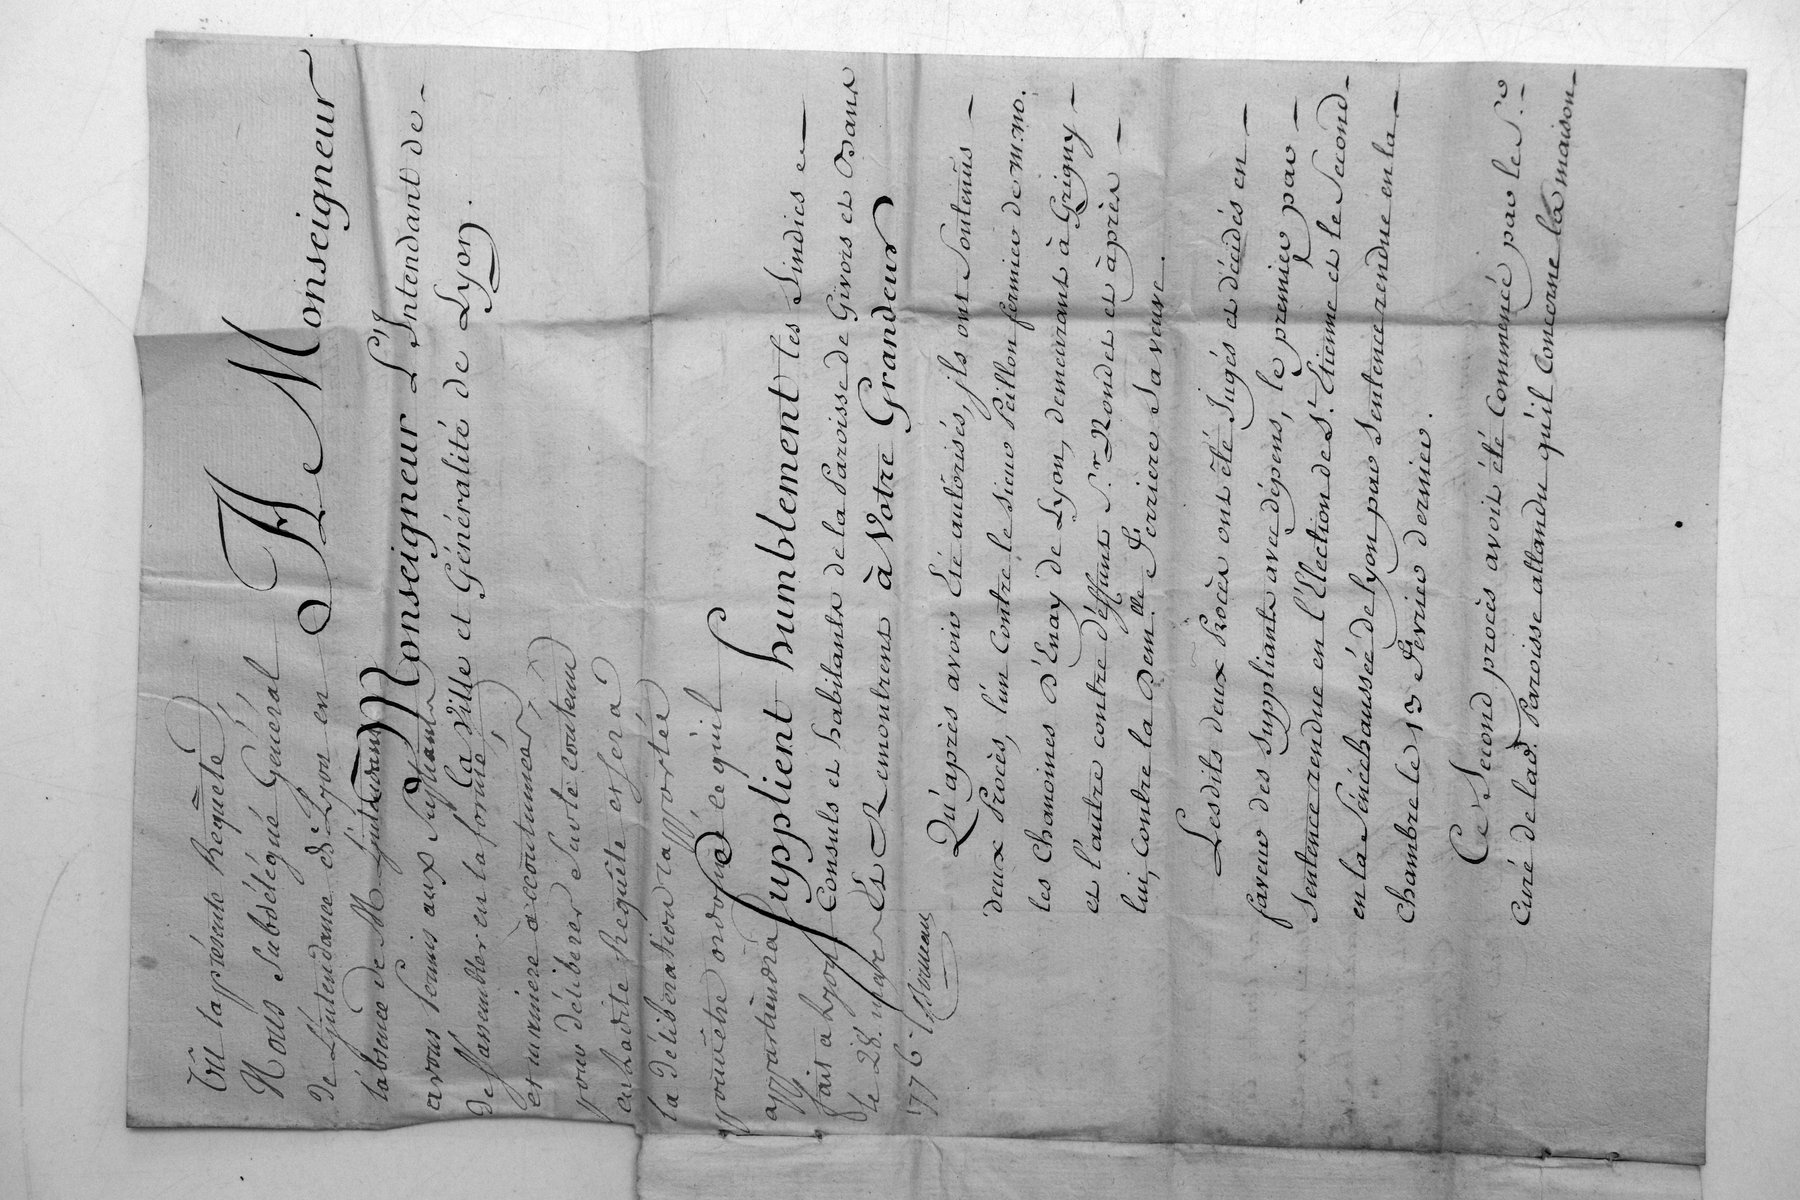 A Monseigneur
Monseigneur L'Intendant de
La Ville et Généralité de Lyon.
Supplient humblement les Sindics
Consuls et habitants de la Paroisse de Givors et Bans
Et Remontrent à Votre Grandeur
Qu'après avoir Été autorisés, jls ont Soutenûs
deux Procès, l'un Contre le Sieur Peillon fermier de m.mo.
les Chanoines D'Enay de Lyon, demeurant à Grigny
et l'autre contre déffunt S.r Rondet et après
lui, Contre la Dem.lle Ferriere Sa veuve.
Lesdits deux Procès ont été Jugés et décidés en
faveur des Suppliants avec dépens, le premier par
Sentence rendue en l'Election de S.t Etienne et le Second
en la Sénéchaussée de Lyon par Sentence rendue en la
Chambre le 13 Février dernier.
Ce Second procès avoit été Commencé par le S.r
Curé de lad. Paroisse attandu qu'il Concerne la maison
Vû la présente Requête,
Nous Subdélégué Général
de L'jntendance de Lyon en
l'absence de M. L'jntendant
avons Permis aux Supliants
de s'assembler en la forme
et maniere accoutumée,
pour déliberer Sur le contenu
en Ladite Requête et sera
la déliberation rapportée
pour être ordonné ce qu'il
appartiendra
fait a Lyon
le 28. mars
1776